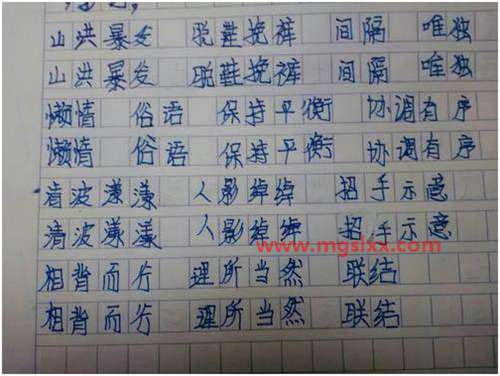 山洪暴发 脱鞋挽裤 间隔 唯独
山洪暴发 脱鞋挽裤 间隔 唯独
懒惰 俗语 保持平衡 协调有序
懒惰 俗语 保持平衡 协调有序
清波漾漾 人影绰绰 招手示意
清波漾漾 人影绰绰 招手示意
www.mgsixx.com
相背而行 理所当然 联结
相背而行 理所当然 联结